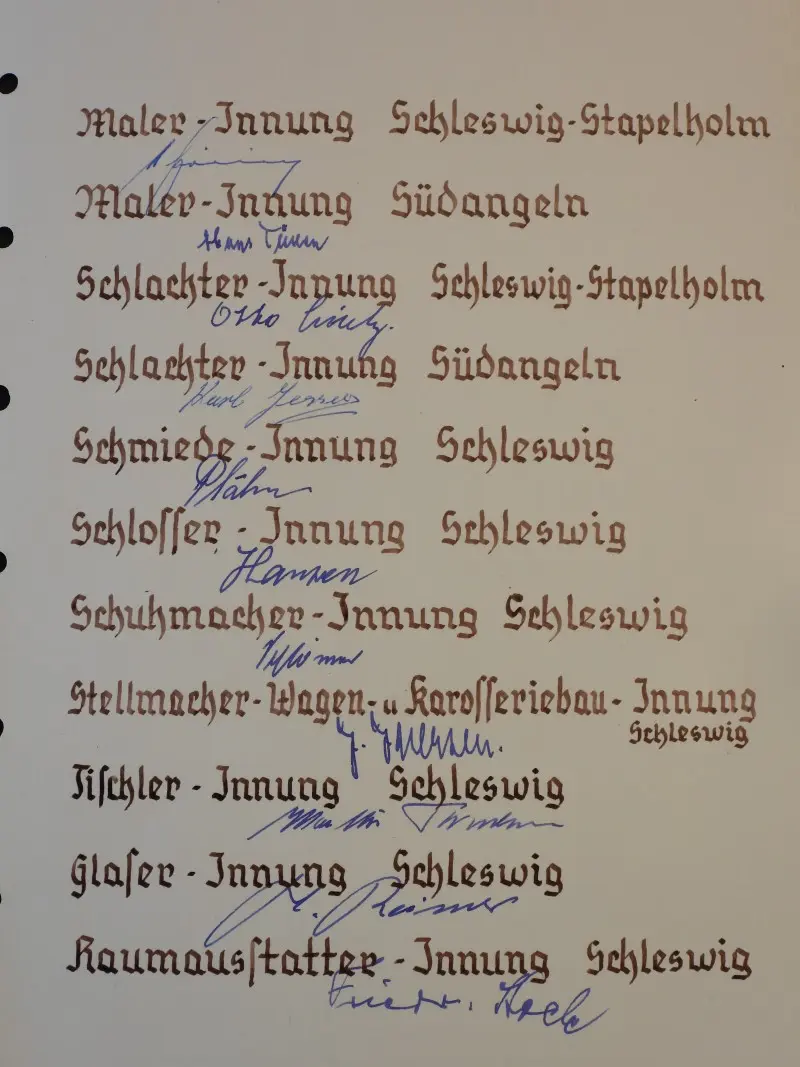 Maler-Innung Schleswig-Stapelholm
Maler-Innung Südangeln
Hans
Schlachter-Innung Schleswig-Stapelholm
Otto
Schlachter-Innung Südangeln
Karl
Schmiede-Innung Schleswig
Plähn
Schloſſer-Innung Schleswig
Hansen
Schuhmacher-Innung Schleswig
Stellmacher-Wagen- u Karoſſeriebau-Innung
Schleswig
J.
Tiſchler-Innung Schleswig
Martin
Glaſer-Innung Schleswig
Reimer
Raumausſtatter-Innung Schleswig
Friedr. Hock